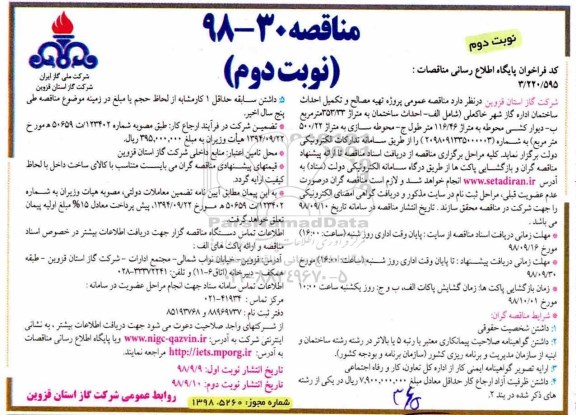 مناقصه ۳۰-۹۸
(نوبت دوم)
نوبت دوم
شرکت ملی گاز ایران
شرکت گاز استان قزوین
کد فراخوان پایگاه اطلاع رسانی مناقصات :
۳/۲۲۰/۵۹۵
شرکت گاز استان قزوین درنظر دارد مناقصه عمومی پروژه تهیه مصالح و تکمیل احداث
ساختمان اداره گاز شهر خاکعلی (شامل الف- احداث ساختمان به متراژ ۳۵۳/۳۳ مترمربع
ب- دیوار کشی محوطه به متراژ ۱۱۶/۴۶ متر طول ج- محوطه سازی به متراژ ۵۰۰/۲۲
متر مربع) به شماره (۲۰۹۸۰۹۱۳۳۵۰۰۰۰۰۳) را از طریق سامانه تدارکات الکترونیکی
دولت برگزار نمایند. کلیه مراحل برگزاری مناقصه از دریافت اسناد مناقصه تا ارائه پیشنهاد
مناقصه گران و بازگشایی پاکت ها از طریق درگاه سامانه الکترونیکی دولت (ستاد) به
آدرس www.setadiran.ir انجام خواهد شد و لازم است مناقصه گران درصورت
عدم عضویت قبلی، مراحل ثبت نام در سایت مذکور و دریافت گواهی امضای الکترونیکی
را جهت شرکت در مناقصه محقق سازند . تاریخ انتشار مناقصه در سامانه تاریخ ۹۸/۰۹/۱۰
می باشد .
مهلت زمانی دریافت اسناد مناقصه از سایت : پایان وقت اداری روز شنبه (ساعت ۱۶:۰۰)
مورخ ۹۸/۰۹/۱۶
مهلت زمانی دریافت پیشنهاد : تا پایان وقت اداری روز شنبه (ساعت ۱۶:۰۰) مورخ
۹۸/۰۹/۳۰
زمان بازگشایی پاکت ها: زمان گشایش پاکات الف، ب و ج: روز یکشنبه ساعت ۱۰:۰۰
مورخ ۹۸/۱۰/۰۱
شرایط مناقصه گران:
۱: داشتن شخصیت حقوقی
۲: داشتن گواهینامه صلاحیت پیمانکاری معتبر با رتبه ۵ یا بالاتر در رشته رشته ساختمان و
ابنیه از سازمان مدیریت و برنامه ریزی کشور (سازمان برنامه و بودجه کشور).
۳: ارایه تصویر گواهینامه ایمنی کار از اداره کل تعاون کار و رفاه اجتماعی
۴: داشتن ظرفیت آزاد ارجاع کار حداقل معادل مبلغ ۷,۹۰۰,۰۰۰,۰۰۰ ریال در یکی از رشته
های ذکر شده در بند ۲.
۵: داشتن سابقه حداقل ۱ کار مشابه از لحاظ حجم یا مبلغ در زمینه موضوع مناقصه طی
پنج سال اخیر.
تضمین شرکت در فرآیند ارجاع کار: طبق مصوبه شماره ۱۲۳۴۰۲/ت ۵۰۶۵۹ ه مورخ
۱۳۹۴/۰۹/۲۲ هیأت وزیران به مبلغ ۳۹۵,۰۰۰,۰۰۰ ریال.
محل تامین اعتبار: منابع داخلی شرکت گاز استان قزوین
قیمتهای پیشنهادی مناقصه گران می بایست متناسب با کالای ساخت داخل با لحاظ
کیفیت ارایه گردد.
به این پیمان مطابق آیین نامه تضمین معاملات دولتی، مصوبه هیات وزیران به شماره
۱۲۳۴۰۲/ت ۵۰۶۵۹ ه مورخ ۱۳۹۴/۰۹/۲۲، پیش پرداخت معادل ۱۵% مبلغ اولیه پیمان
تعلق خواهد گرفت.
اطلاعات تماس دستگاه مناقصه گزار جهت دریافت اطلاعات بیشتر در خصوص اسناد
مناقصه و ارائه پاکت های الف :
آدرس: قزوین- خیابان نواب شمالی- مجتمع ادارات - شرکت گاز استان قزوین - طبقه
همکف- دبیرخانه (اتاق ۶-۱۱) و تلفن: ۳۳۳۷۲۲۴۱-۰۲۸
اطلاعات تماس سامانه ستاد جهت انجام مراحل عضویت در سامانه :
مرکز تماس : ۴۱۹۳۴-۰۲۱
دفتر ثبت نام : ۸۸۹۶۹۷۳۷ و ۸۵۱۹۳۷۶۸
از شرکتهای واجد صلاحیت دعوت می شود جهت دریافت اطلاعات بیشتر ، به نشانی
اینترنتی شرکت به آدرس: www.nigc-qazvin.ir ویا پایگاه اطلاع رسانی مناقصات
به آدرس: http://iets.mporg.ir مراجعه نمایند.
تاریخ انتشار نوبت اول: ۹۸/۹/۹
تاریخ انتشار نوبت دوم: ۹۸/۹/۱۰
شماره مجوز: ۵۲۶۰-۱۳۹۸
روابط عمومی شرکت گاز استان قزوین
ParsNamadData
۸۸۳۴۹۶۷۰-۵